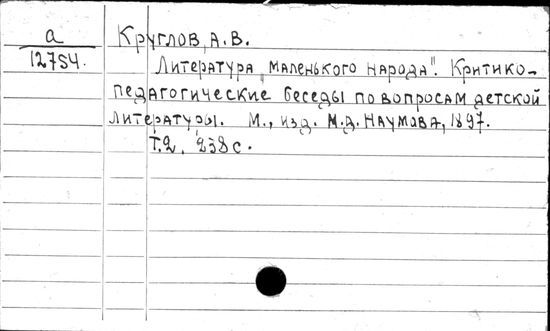 a
12754.
Круглов, А.В.
Литература „маленького народа". Критико-
педагогические беседы по вопросам детской
литературы. М., изд. М.Д. Наумова, 1897.
Т.2. 238 с.